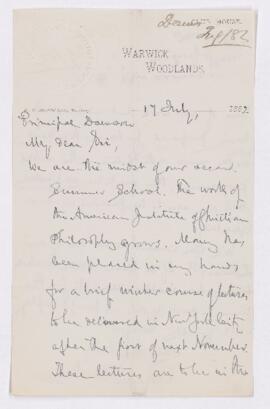 WARWICK
WOODLANDS.
17 July, 1882.
Principal Dawson
My dear Sir,
We are in the midst of our second
Summer School. The work of
the American Institute of Christian
Philosophy grows. Money has
been placed in my hands
for a brief winter course of lectures
to be delivered in New York City
after the first of next November.
These lectures are to be in the